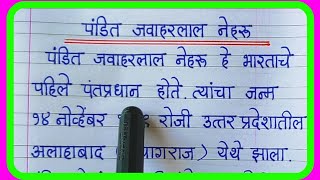 पंडित जवाहरलाल नेहरू
पंडित जवाहरलाल नेहरू हे भारताचे
पहिले पंतप्रधान होते. त्यांचा जन्म
१४ नोव्हेंबर रोजी उत्तर प्रदेशातील
अलाहाबाद ( येथे झाला.